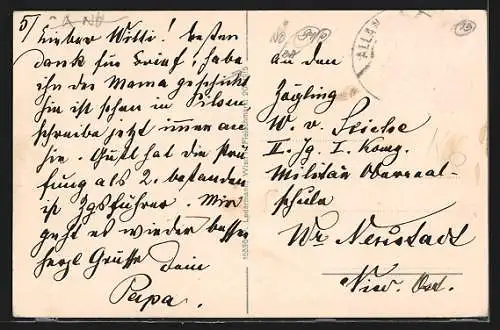 5/
Lieber Willi! besten
dank für Brief; habe
ihn der Mama geschickt
sie ist schon in Pilsen
schreibe jetzt immer an
sie. Gustl hat die Prü-
fung als 2. bestanden
ist Zgsführer. Mir
geht es wieder besser
herzl Grüsse Dein
Papa.
an den
Zögling
W. v.
II. Jg. I. Komp.
Militär Oberreal-
schule
Wr Neustadt
Nied. Öst.